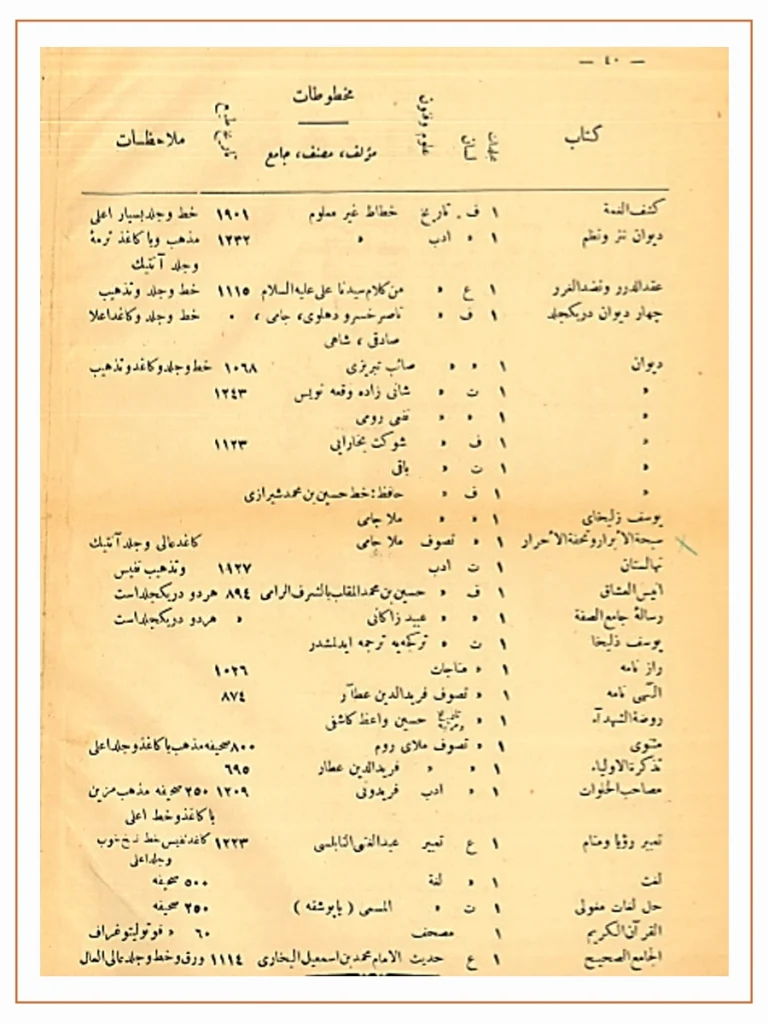 — ٤٠ —
مخطوطات
كتاب جلدات لسان علوم وفنون مؤلف، مصنف، جامع تاريخ طبع ملاحظات
كشف الغمة ١ ف . تاريخ خطاط غير معلوم ١٩٠١ خط وجلد بسيار اعلى
ديوان نثر ونظم ١ » ادب » ١٢٣٢ مذهب وبا كاغذ ترمة
وجلد آنتيك
عقدالدرر ونضدالغرر ١ ع » من كلام سيدنا على عليه السلام ١١١٥ خط وجلد وتذهيب
چهار ديوان دريكجلد ١ ف » ناصر خسرو دهلوى، جامى، ٠ خط وجلد وكاغداعلا
صادقى، شاهى
ديوان ١ » » صائب تبريزى ١٠٦٨ خط وجلد وكاغد وتذهيب
» ١ ت » شانى زاده وقعه نويس ١٢٤٣
» ١ » » نفعى رومى
» ١ ف » شوكت بخارايى ١١٢٣
» ١ ت » باقى
» ١ ف » حافظ: خط حسين بن محمد شيرازى
يوسف زليخاى ١ » » ملا جامى
سبحة الأبرار وتحفة الأحرار ١ » تصوف ملا جامى كاغدعالى وجلد آنتيك
نهالستان ١ ت ادب ١٩٢٧ وتذهيب نفيس
انيس العشاق ١ ف » حسين بن محمد المقلب بالشرف الرامى ٨٩٤ هردو دريكجلداست
رسالۀ جامع الصفة ١ » » عبيد زاكانى » هردو دريكجلداست
يوسف زليخا ١ ت » تركجه يه ترجمه ايدلمشدر
راز نامه ١ » مناجات ١٠٢٦
الٓهى نامه ١ » تصوف فريدالدين عطار ٨٧٤
روضة الشهدآء ١ » تاريخ حسين واعظ كاشفى
مثنوى ١ » تصوف ملاى روم ٨٠٠ صحيفه مذهب با كاغذ وجلداعلى
تذكرة الاولياء ١ » » فريدالدين عطار ٦٩٥
مصاحب الخلوات ١ » ادب فريدونى ١٢٠٩ ٢٥٠ صحيفه مذهب مزين
با كاغذ وخط اعلى
تعبير رؤيا ومنام ١ ع تعبير عبدالغنى النابلسى ١٢٢٣ كاغدنفيس خط نسخ خوب
وجلداعلى
لغت ١ » لغة ٥٠٠ صحيفه
حل لغات مغولى ١ ت » المسمى (بابوشقه) ٢٥٠ صحيفه
القرآن الكريم ١ مصحف ٦٠ » فوتوليتوغراف
الجامع الصحيح ١ ع حديث الامام محمد بن اسمعيل البخارى ١١١٤ ورق وخط وجلد عالى العال